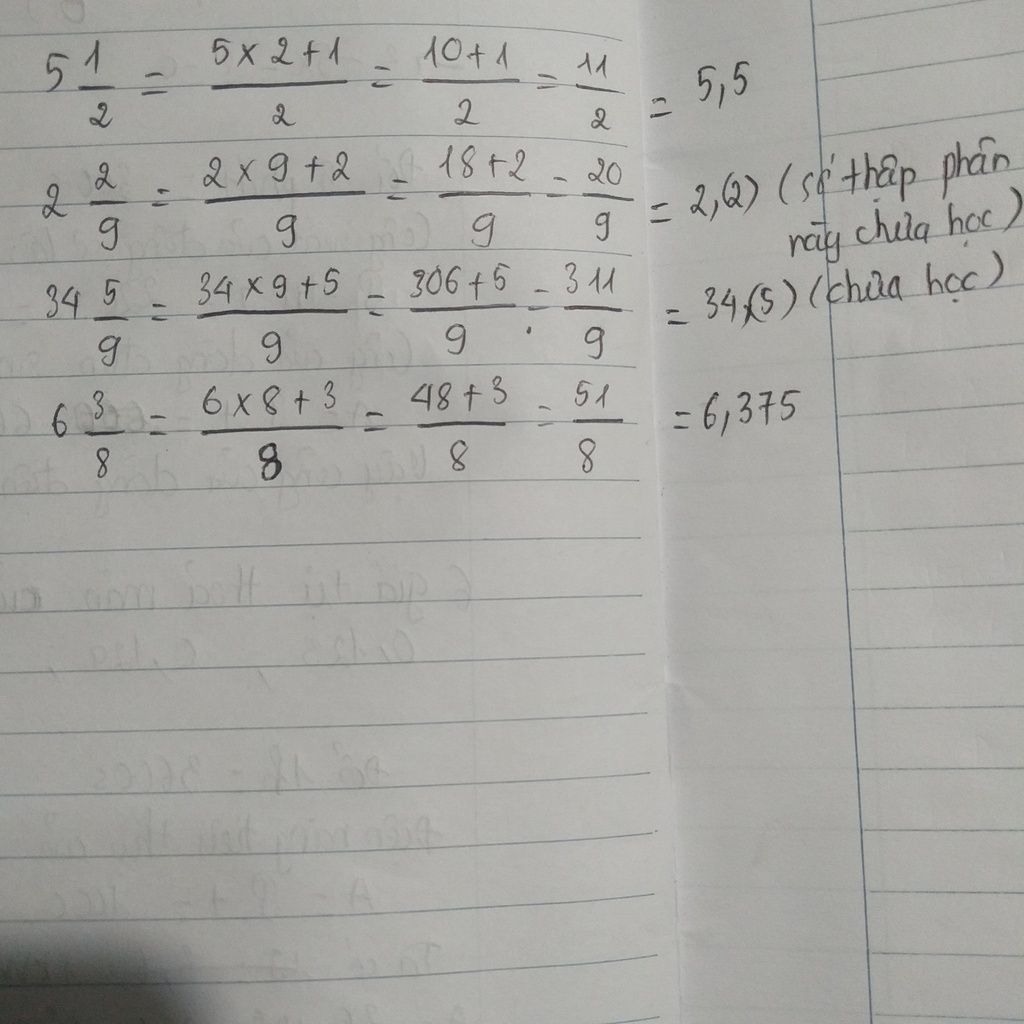 5 1/2 = (5 × 2 + 1)/2 = (10 + 1)/2 = 11/2 = 5,5
2 2/9 = (2 × 9 + 2)/9 = (18 + 2)/9 = 20/9 = 2,(2) (số thập phân
này chưa học)
34 5/9 = (34 × 9 + 5)/9 = (306 + 5)/9 = 311/9 = 34,(5) (chưa học)
6 3/8 = (6 × 8 + 3)/8 = (48 + 3)/8 = 51/8 = 6,375